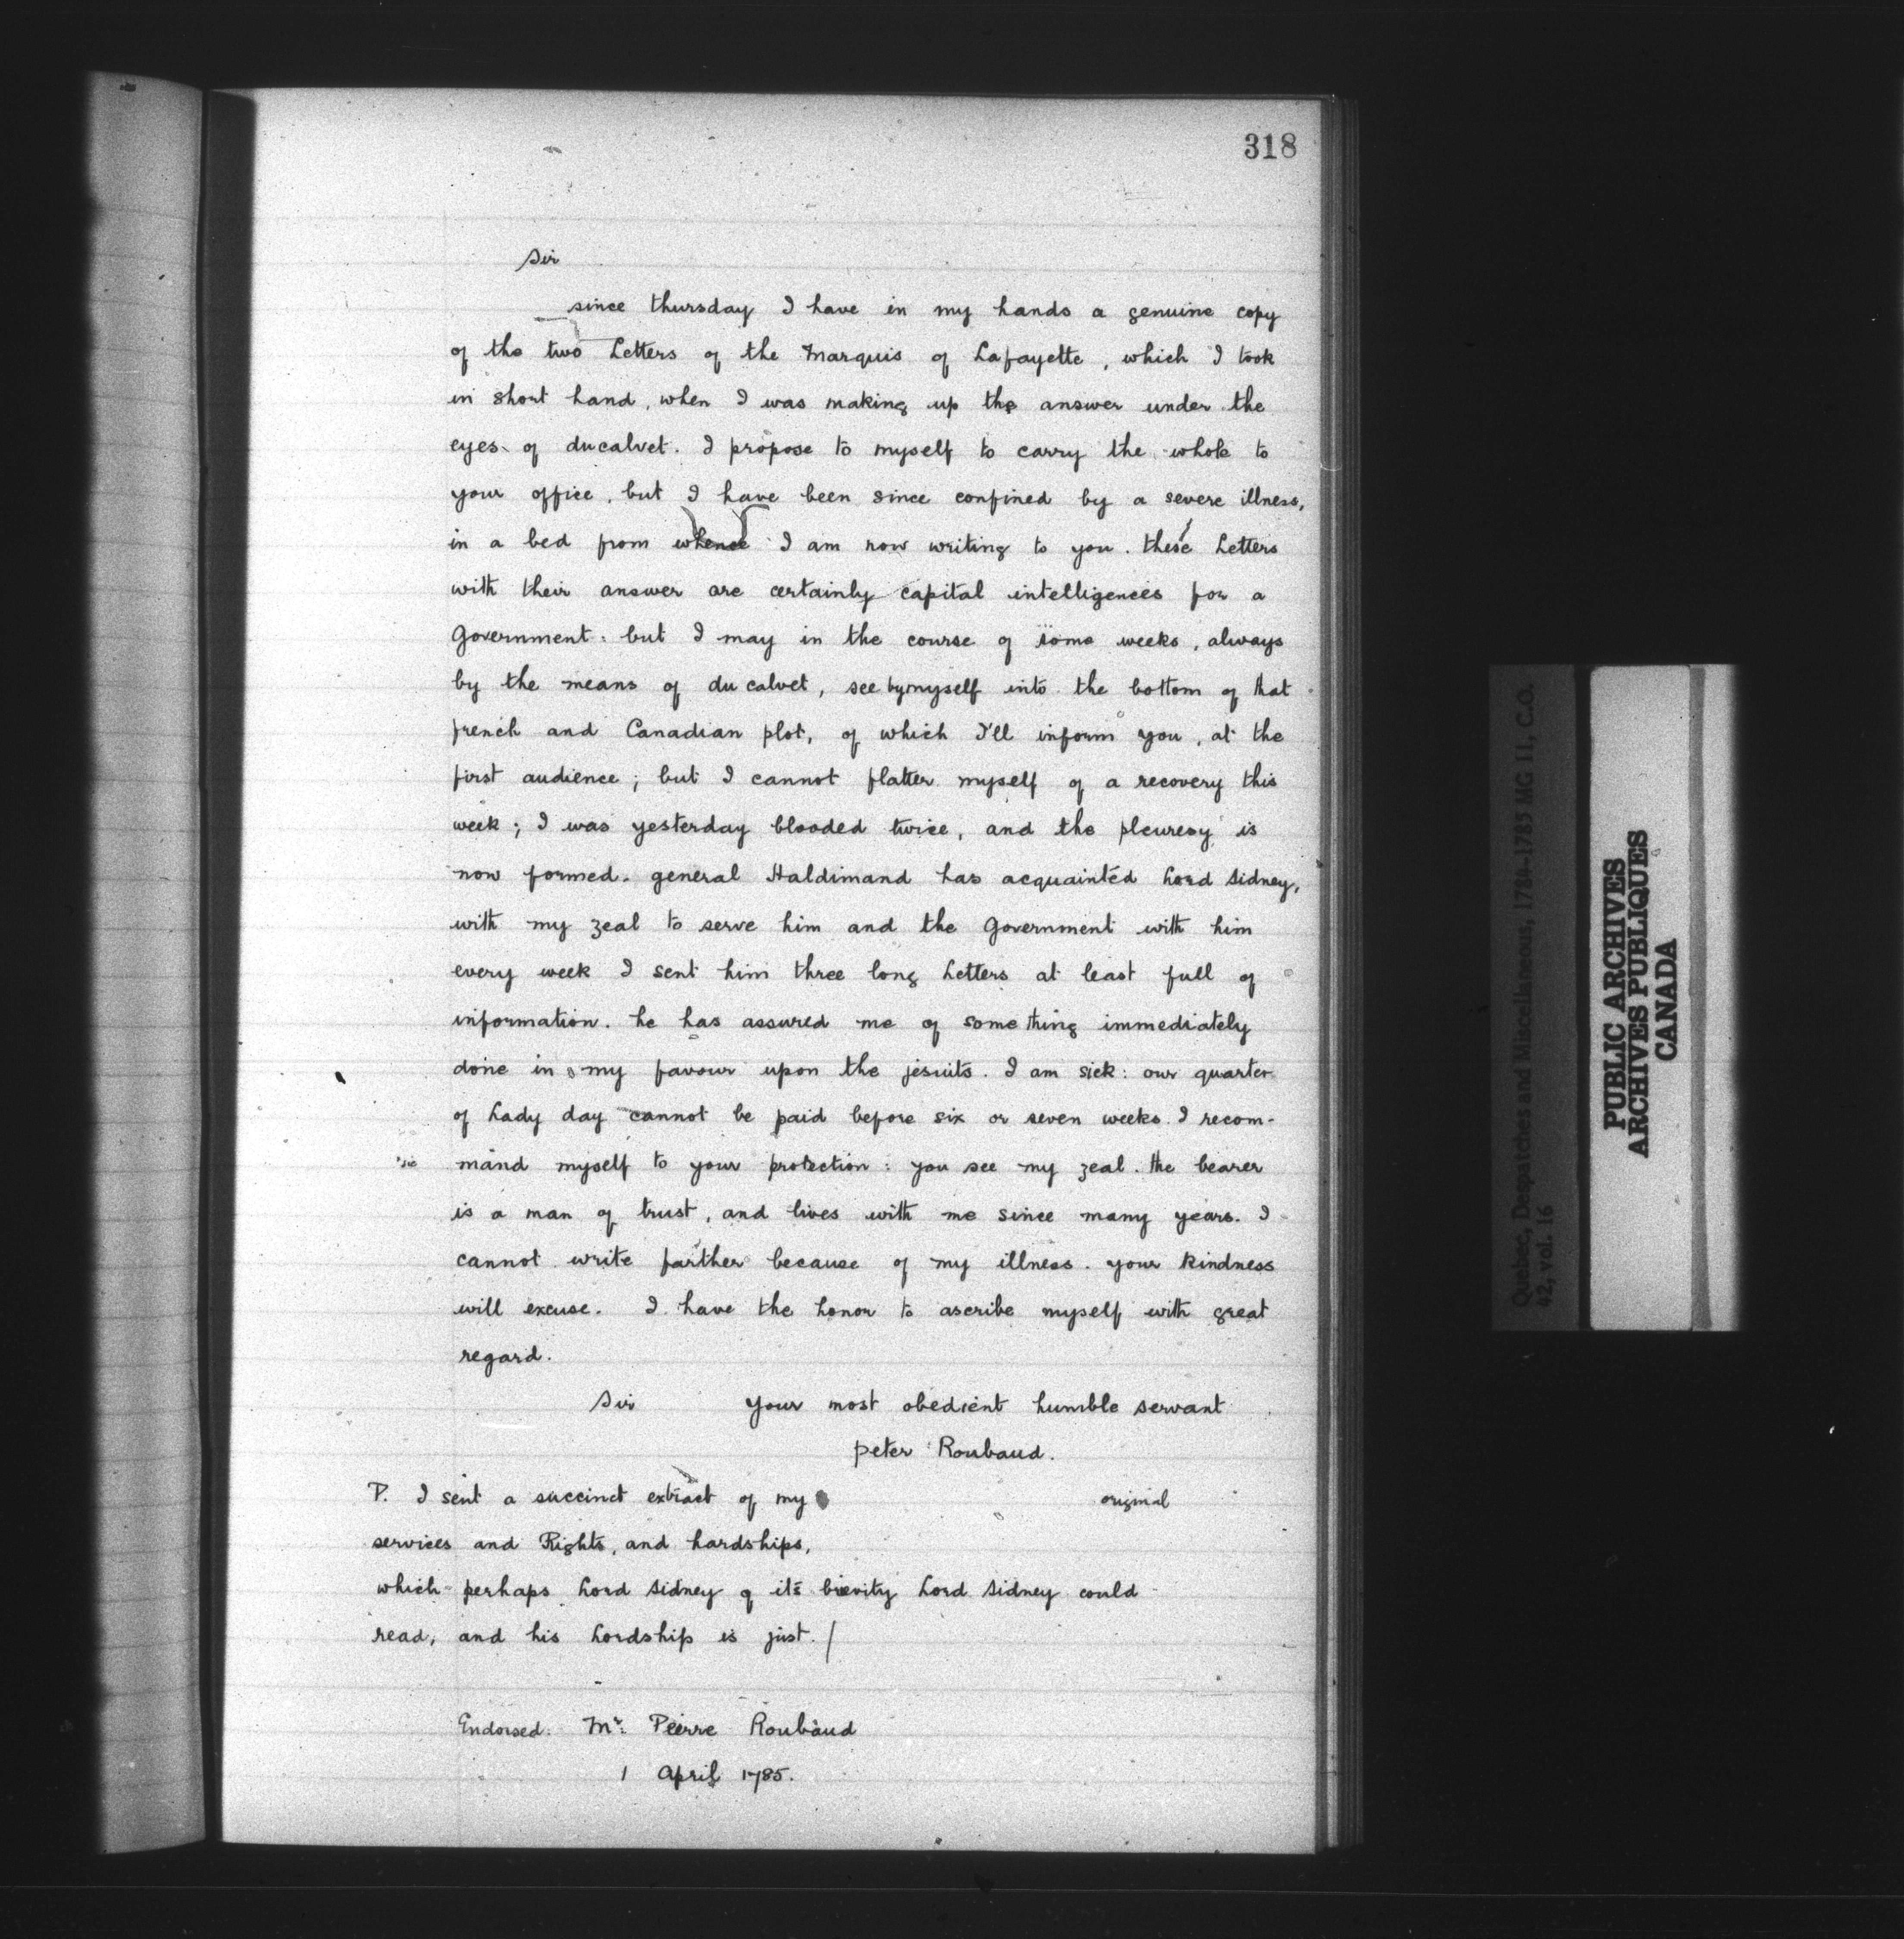 318
Sir
since thursday I have in my hands a genuine copy
of the two Letters of the Marquis of Lafayette, which I took
in short hand, when I was making up the answer under the
eyes of ducalvet. I propose to myself to carry the whole to
your office, but I have been since confined by a severe illness,
in a bed from whence I am now writing to you. these Letters
with their answer are certainly capital intelligences for a
Government: but I may in the course of some weeks, always
by the means of du calvet, see by myself into the bottom of that
french and Canadian plot, of which I'll inform you, at the
first audience; but I cannot flatter myself of a recovery this
week; I was yesterday blooded twice, and the pleuresy is
now formed. general Haldimand has acquainted Lord Sidney,
with my zeal to serve him and the Government with him
every week I sent him three long Letters at least full of
information. he has assured me of some thing immediately
done in my favour upon the jesuits. I am sick: our quarter
of Lady day cannot be paid before six or seven weeks. I recom-
sic mand myself to your protection: you see my zeal. the bearer
is a man of trust, and lives with me since many years. I
cannot write farther because of my illness. your kindness
will excuse. I have the honor to ascribe myself with great
regard.
Sir your most obedient humble servant
peter Roubaud.
P. I sent a succinct extract of my original
services and Rights, and hardships,
which perhaps Lord Sidney of it's brevity Lord Sidney could
read, and his Lordship is just. /
Endorsed: Mr. Pierre Roubaud
1 April 1785.
Quebec, Despatches and Miscellaneous, 1784-1785 MG 11, C.O.
42, vol. 16
PUBLIC ARCHIVES
ARCHIVES PUBLIQUES
CANADA